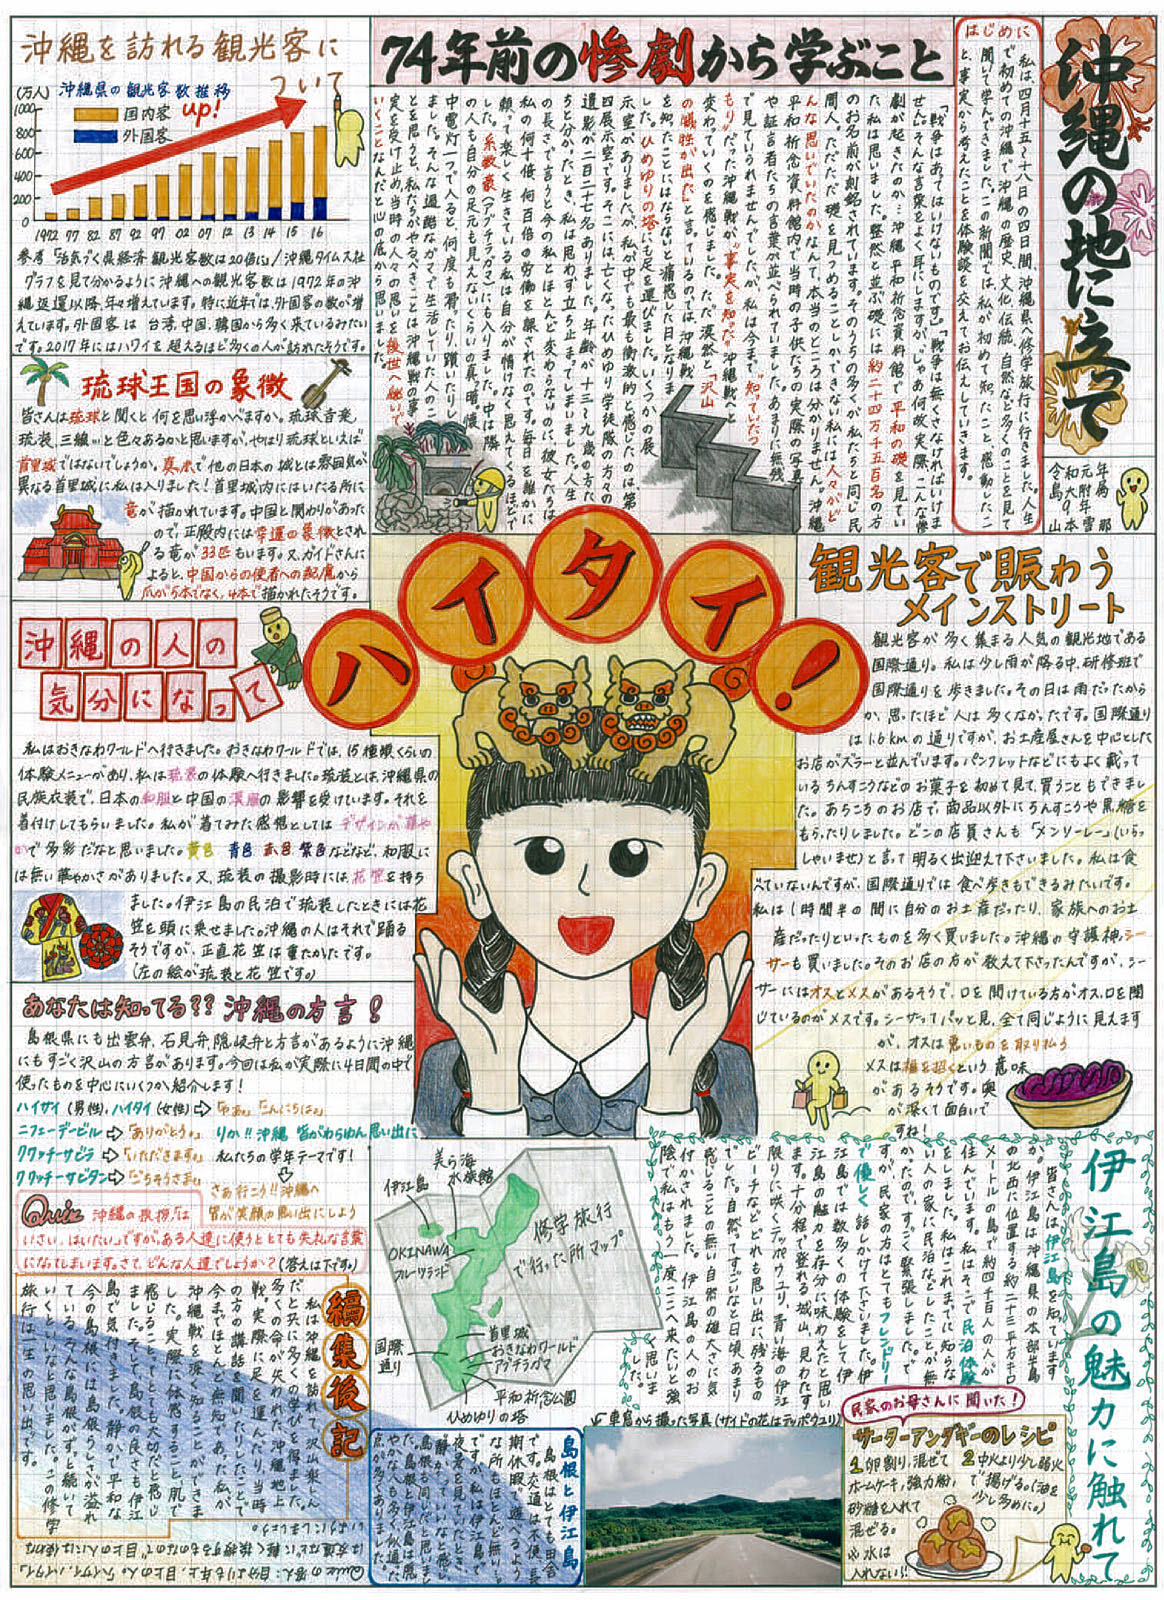 沖縄の地に立って
はじめに
私は、四月十五〜十八日の四日間、沖縄県へ修学旅行に行きました。人生
で初めての沖縄で、沖縄の歴史、文化、伝統、自然などの多くのことを見て
聞いて学んできました。この新聞では、私が初めて知ったこと、感動したこ
と、事実から考えたことを体験談を交えてお伝えしていきます。
令和元年
74年前の惨劇から学ぶこと
「戦争はあってはいけないものです。」「戦争は無くさなければいけま
せん。」そんな言葉をよく耳にしますが、じゃあ何故、実際、こんな惨
劇が起きたのか…沖縄平和祈念資料館で、平和の礎を見てい
た私は思いました。整然と並ぶ礎には約二十四万千五百名の方
のお名前が刻銘されています。そのうちの多くが私たちと同じ民
間人。ただただ礎を見つめることしかできない私には人々がど
んな思いでいたのかなんて、本当のところは分かりません。沖縄
平和祈念資料館内で当時の子供たちの実際の写真
や証言者たちの言葉が並べられていました。あまりに無残
で見ていられませんでしたが、私は今まで、"知っていたつ
もり"だった沖縄戦が、"事実を知った"沖縄戦へと
変わっていくのを感じました。ただ、漠然と「沢山
の犠牲が出た」と言っているのでは、沖縄戦
を知ったことにはならないと痛感した日となりま
した。ひめゆりの塔にも足を運びました。いくつかの展
示室がありましたが、私が中でも最も衝撃的と感じたのは第
四展示室です。そこには、亡くなったひめゆり学徒隊の方々の
遺影が二百二十七名ありました。年齢が十三〜九歳の方た
ちと分かったとき、私は思わず立ち止まってしまいました。人生
の長さで言うと今の私とほとんど変わらないのに、彼女たちは
私の何十倍、何百倍の労働を課されたのです。毎日を誰かに
願って楽しく生きている私は自分が情けなく思えてくるほどで
した。糸数壕(アブチラガマ)にも入りました。中は、隣
の人も自分と自分の足元さえも見えないくらいの真っ暗。懐
中電灯一つで入ると、何度も滑ったり、躓いたりし
ました。そんな過酷ながまで生活していた人のこ
とを思うと、私たちがやるべきことは沖縄戦の事
実を受け止め、当時の人々の思いを後世へ継いで
いくことなんだと心の底から思いました。
沖縄を訪れる観光客に
ついて
(万人)
沖縄県の観光客数推移
国内客
外国客
up!
1000
800
600
400
200
0
1972 77 82 87 92 97 02 07 12 13 14 15 16
参考「活気づく県経済 観光客数は20倍に」/沖縄タイムス社
グラフを見て分かるように沖縄への観光客数は1972年の沖
縄返還以降、年々増えています。特に近年では、外国客の数が増
えています。外国客は台湾、中国、韓国から多く来ているみたい
です。2017年にはハワイを超えるほど多くの人が訪れたそうです。
琉球王国の象徴
皆さんは琉球と聞くと何を思い浮かべますか。琉球音楽、
琉装、三線…と色々あるかと思いますが、やはり琉球といえば
首里城ではないでしょうか。真っ赤で他の日本の城とは雰囲気が
異なる首里城に私は入りました!首里城内にはいたる所に
竜が描かれています。中国と関わりがあった
ので、正殿内には幸運の象徴とされ
る竜が33匹もいます。又、ガイドさんに
よると、中国からの使者への配慮から
爪が5本でなく、4本で描かれたそうです。
沖縄の人の
気分になって
私はおきなわワールドへ行きました。おきなわワールドでは、15種類くらいの
体験メニューがあり、私は琉装の体験へ行きました。琉装とは、沖縄県の
民族衣装で、日本の和服と中国の漢服の影響を受けています。それを
着付けしてもらいました。私が着てみた感想としてはデザインが華や
かで多彩だなと思いました。黄色 青色 赤色 紫色などなど、和服に
は無い華やかさがありました。又、琉装の撮影時には、花笠を持ち
ました。伊江島の民泊で琉装したときには花
笠を頭に乗せました。沖縄の人はそれで踊る
そうですが、正直花笠は重たかったです。
(左の絵が琉装と花笠です。)
ハイタイ!
観光客で賑わう
メインストリート
観光客が多く集まる人気の観光地である
国際通り。私は少し雨が降る中、研修班で
国際通りを歩きました。その日は雨だったから
か、思ったほど人は多くなかったです。国際通り
は1.6kmの通りですが、お土産屋さんを中心とした
お店がズラーと並んでいます。パンフレットなどにもよく載って
いるちんすこうなどのお菓子を初めて見て、買うこともできまし
た。あちこちのお店で、商品以外にちんすこうや黒糖を
もらったりしました。どこの店員さんも「メンソーレー」(いらっ
しゃいませ)と言って明るく出迎えて下さいました。私は食
べていないんですが、国際通りでは食べ歩きもできるみたいです。
私は1時間半の間に自分のお土産だったり、家族へのお土
産だったりといったものを多く買いました。沖縄の守護神、シー
サーも買いました。そのお店の方が教えて下さったんですが、シー
サーにはオスとメスがあるそうで、口を開けている方がオス、口を閉
じているのがメスです。シーサってパッと見、全て同じように見えます
が、オスは悪いものを取り払う
メスは福を招くという意味
があるそうです。奥
が深くて面白いで
すね!
あなたは知ってる??沖縄の方言!
島根県にも出雲弁、石見弁、隠岐弁と方言があるように沖縄
にもすごく沢山の方言があります。今回は私が実際に4日間の中で
使ったものを中心にいくつか紹介します!
ハイサイ(男性)、ハイタイ(女性)⇨「やあ」「こんにちは。」
ニフェーデービル⇨「ありがとう。」
クワッチーサビラ⇨「いただきます。」
クワッチーサビタン⇨「ごちそうさま。」
りか!!沖縄 皆がわらゆん思い出に
私たちの学年テーマです!
さあ行こう!!沖縄へ
皆が笑顔の思い出にしよう
Quiz 沖縄の挨拶「は
いさい、はいたい」ですが、ある人達に使うととても失礼な言葉
になってしまいます。さて、どんな人達でしょうか?(答えは下です。)
美ら海
水族館
伊江島
OKINAWA
フルーツランド
国際
通り
首里城
おきなわワールド
アブチラガマ
平和祈念公園
ひめゆりの塔
修学旅行
で行った所マップ
伊江島の魅力に触れて
皆さんは、伊江島を知っています
か。伊江島は沖縄県の本部半島
の北西に位置する約二十三平方キロ
メートルの島で、約四千百人の人が
住んでいます。私はそこで民泊体験
をしました。私はこれまでに知らな
い人の家に民泊などしたことが無
かったので、すごく緊張しました。で
すが、民家の方はとてもフレンドリー
で優しく話しかけて下さいました。
江島では数多くの体験をして、伊
江島の魅力を存分に味わえたと思い
ます。十分程で登れる城山、見わたす
限りに咲くテッポウユリ、青い海の伊江
ビーチなど、どれも思い出に残るもの
でした。自然ってすごいなと日頃、あまり
感じることの無い自然の雄大さに気
付かされました。伊江島の人のお
陰で私はもう一度ここへ来たいと強
く思いま
した。
編集後記
私は沖縄を訪れて、沢山楽しん
だと共に多くの学びを得ました。
多くの命が失われた沖縄地上
戦。実際に足を運んだり、当時
の方の講話を聞いたりしたことで
今までほとんど無知であった私が
沖縄戦を深く知ることができま
した。実際に体感すること、肌で
感じることってとても大切だと感じ
ました。そして、島根の良さも伊江
島で気付きました。静かで平和な
今の島根には島根らしさが溢れ
ている、そんな島根がずっと続いて
いくといいなと思います。この修学
旅行は一生の思い出です。
島根と伊江島
島根はとても田舎
です。交通は不便、長
期休暇に遊べるよう
な所もほとんど無い。
夜景を見ていたとき、
「静かっていいな」と感じ
ました。
島根も同じだと思いま
↙車窓から撮った写真(サイドの花はテッポウユリ)
民家のお母さんに聞いた!
サーターアンダギーのレシピ
1卵割り、混ぜて
ホームケーキ、強力粉、
砂糖を入れて
混ぜる。
※水は
入れない!
2中火より少し弱火
で揚げる。(油を
少し多めに。)